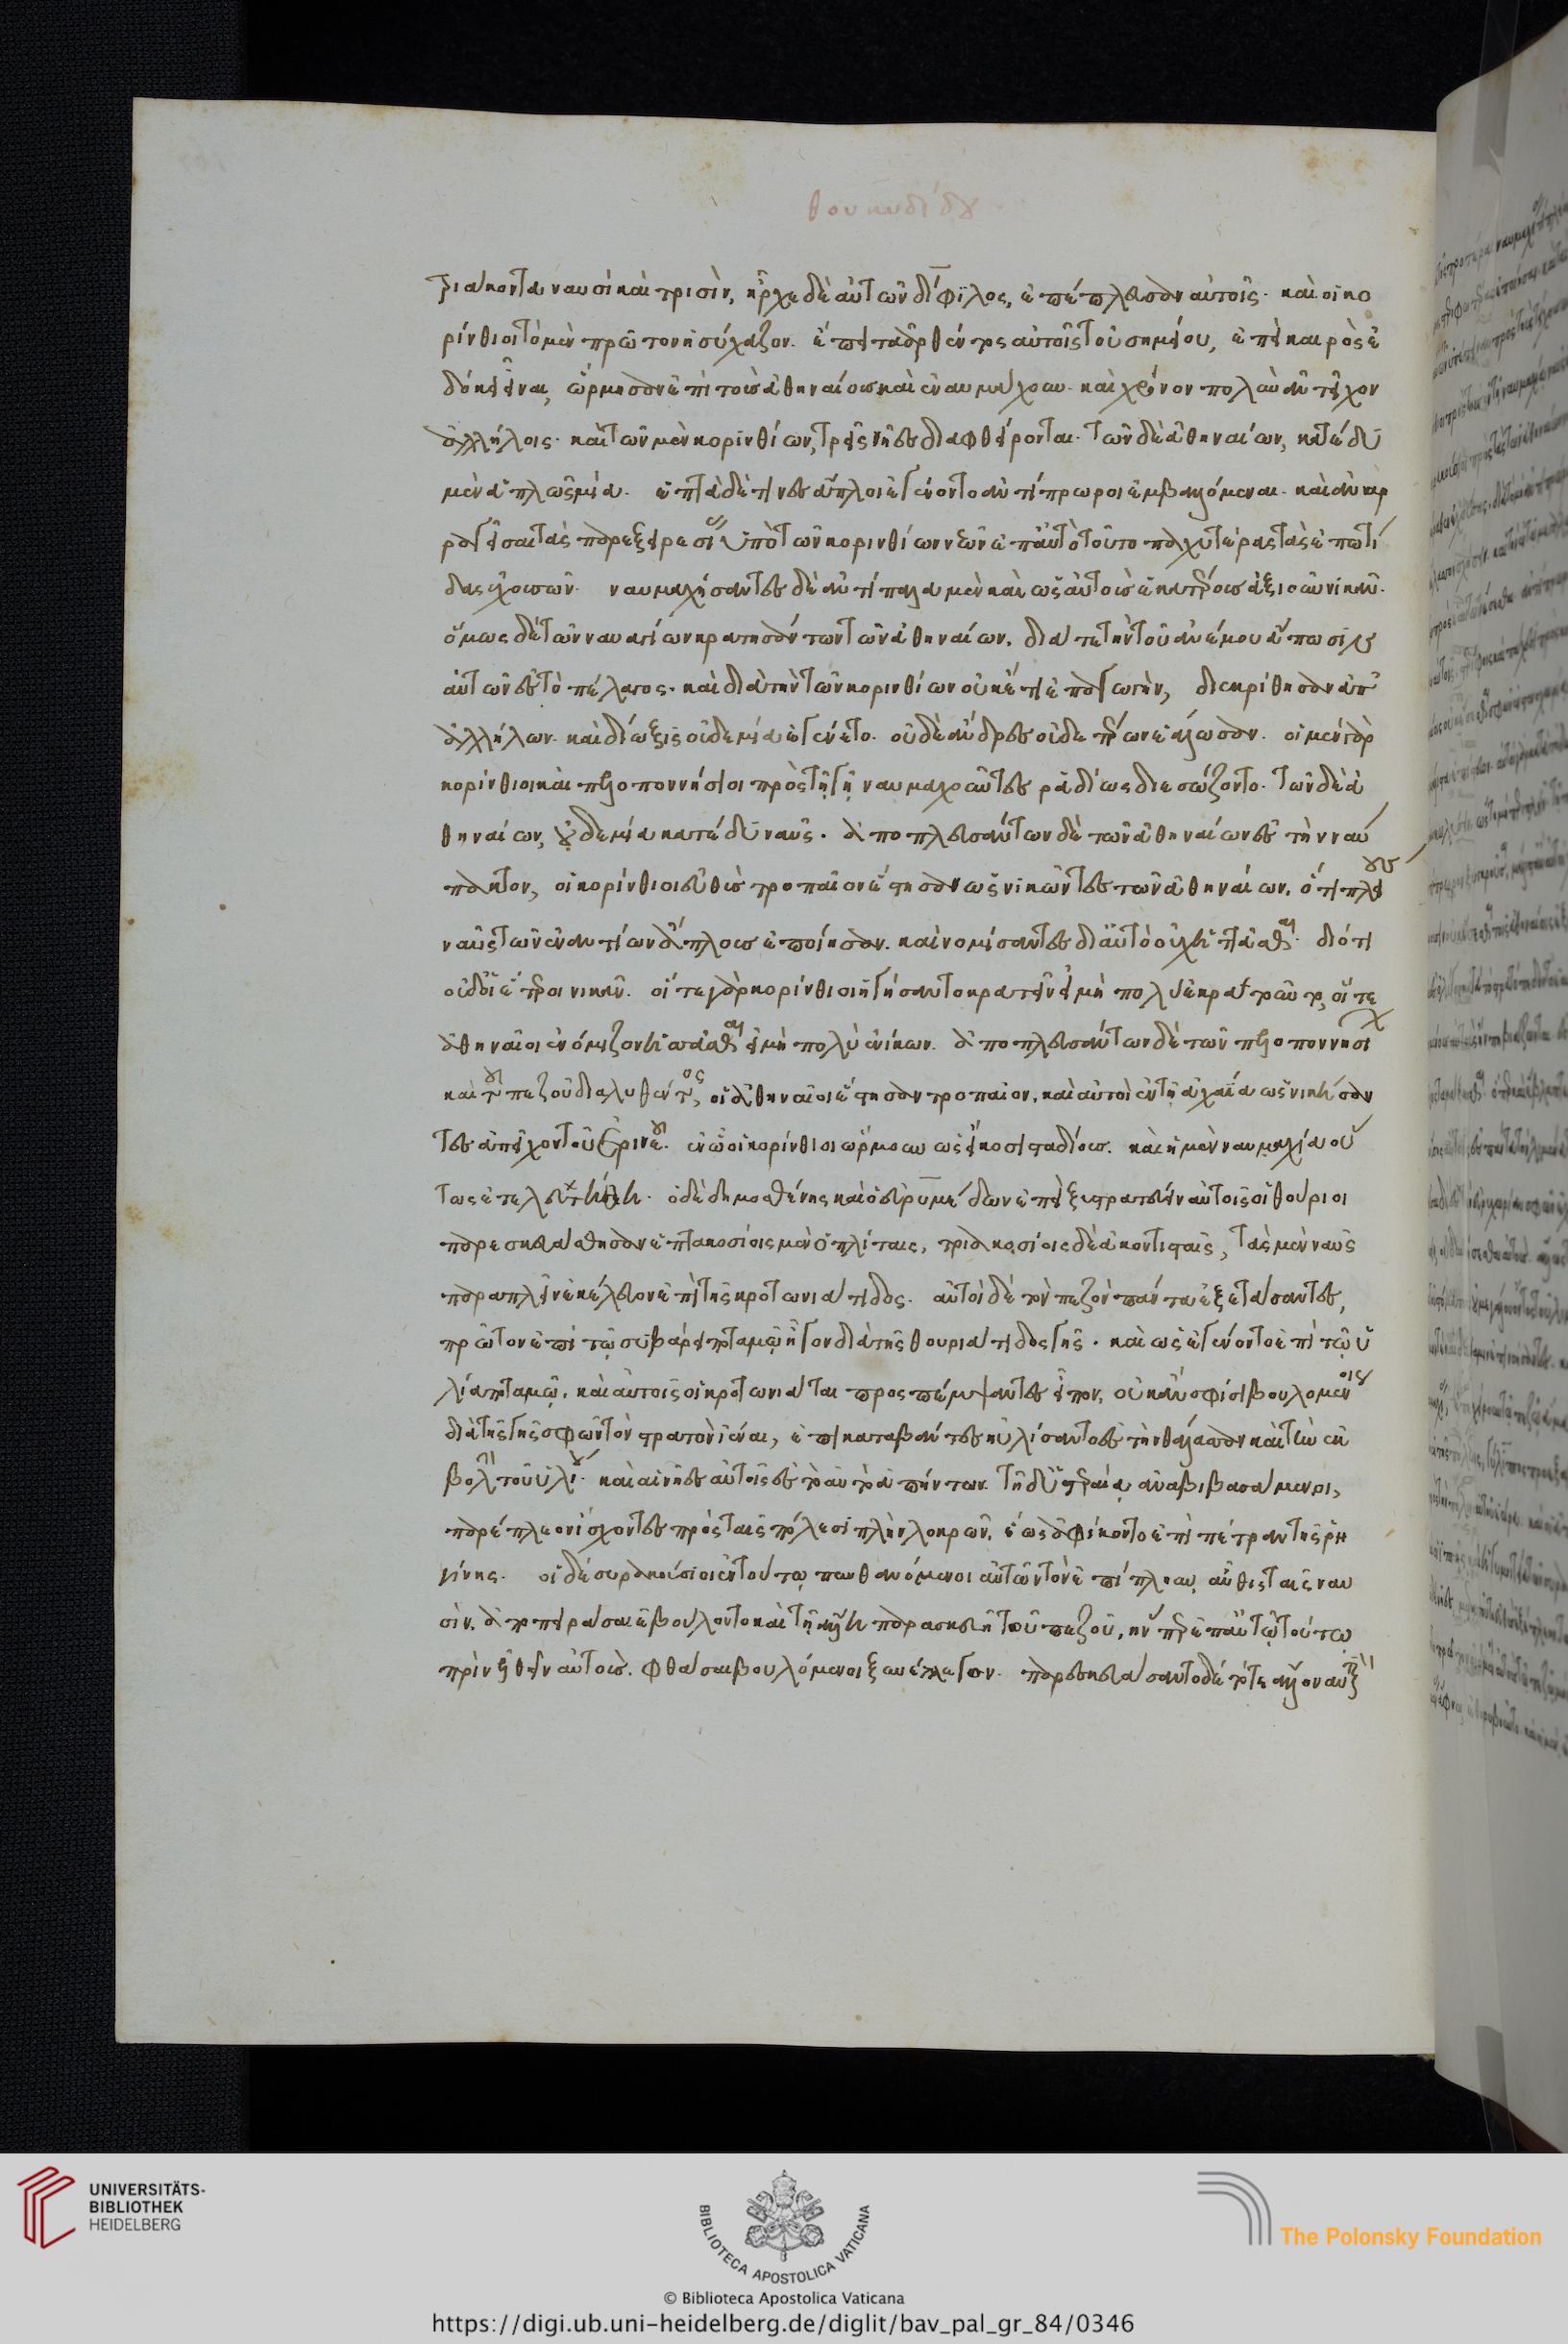 θουκυδίδου
τριάκοντα ναυσὶ καὶ τρισὶν, ἦρχε δὲ αὐτῶν δίφιλος, ἐπέπλευσαν αὐτοῖς. καὶ οἱ κο
ρίνθιοι τὸ μὲν πρῶτον ἡσύχαζον. ἔπειτα ἀρθέντος αὐτοῖς τοῦ σημείου, ἐπεὶ καιρὸς ἐ
δόκει εἶναι, ὥρμησαν ἐπὶ τοὺς ἀθηναίους καὶ ἐναυμάχουν. καὶ χρόνον πολὺν ἀντεῖχον
ἀλλήλοις. καὶ τῶν μὲν κορινθίων, τρεῖς νῆες διαφθείρονται. τῶν δὲ ἀθηναίων, κατέδυ
μὲν ἁπλῶς μία. ἑπτὰ δέ τινες ἄπλοι ἐγένοντο ἀντίπρωροι ἐμβαλόμεναι. καὶ ἀναρ
ραγεῖσαι τὰς παρεξειρεσίας ὑπὸ τῶν κορινθίων νεῶν ἐπ' αὐτὸ τοῦτο παχυτέρας τὰς ἐπωτί
δας ἐχουσῶν. ναυμαχήσαντες δὲ ἀντίπαλα μὲν καὶ ὡς αὐτοὺς ἑκατέρους ἀξιοῦν νικᾶν.
ὅμως δὲ τῶν ναυαγίων κρατησάντων τῶν ἀθηναίων, διά τε τὴν τοῦ ἀνέμου ἄπωσιν
αὐτῶν ἐς τὸ πέλαγος. καὶ διὰ τὴν τῶν κορινθίων οὐκέτι ἐπαγωγὴν, διεκρίθησαν ἀπ'
ἀλλήλων. καὶ δίωξις οὐδεμία ἐγένετο. οὐδὲ ἄνδρες οὐδετέρων ἑάλωσαν. οἱ μὲν γὰρ
κορίνθιοι καὶ πελοποννήσιοι πρὸς τῇ γῇ ναυμαχοῦντες ῥᾳδίως διεσώζοντο. τῶν δὲ ἀ
θηναίων, οὐδεμία κατέδυ ναῦς. ἀποπλευσάντων δὲ τῶν ἀθηναίων ἐς τὴν ναύ
πακτον, οἱ κορίνθιοι εὐθὺς τροπαῖον ἔστησαν ὡς νικῶντες τῶν ἀθηναίων, ὅτι πλείους
ναῦς τῶν ἐναντίων ἄπλους ἐποίησαν. καὶ νομίσαντες δι' αὐτὸ οὐχ ἡττᾶσθαι. διότι
οὐδ' οἱ ἕτεροι νικᾶν. οἵ τε γὰρ κορίνθιοι ἡγήσαντο κρατεῖν εἰ μὴ πολὺ ἐκρατοῦντο, οἵ τε
ἀθηναῖοι ἐνόμιζον ἡσσᾶσθαι εἰ μὴ πολὺ ἐνίκων. ἀποπλευσάντων δὲ τῶν πελοποννησίων
καὶ τοῦ πεζοῦ διαλυθέντος, οἱ ἀθηναῖοι ἔστησαν τροπαῖον, καὶ αὐτοὶ ἐν τῇ ἀχαΐᾳ ὡς νικήσαν
τες ἀπεῖχον τοῦ ἐρινεοῦ. ἐν ᾧ οἱ κορίνθιοι ὥρμουν ὡς εἴκοσι σταδίους. καὶ ἡ μὲν ναυμαχία οὕ
τως ἐτελεύτησεν. ὁ δὲ δημοσθένης καὶ ὁ εὐρυμέδων ἐπεὶ ξυστρατεύειν αὐτοῖς οἱ θούριοι
παρεσκευάσθησαν ἑπτακοσίοις μὲν ὁπλίταις, τριακοσίοις δὲ ἀκοντισταῖς, τὰς μὲν ναῦς
παραπλεῖν ἐκέλευον ἐπὶ τῆς κροτωνιάτιδος. αὐτοὶ δὲ τὸν πεζὸν πάντα ἐξετάσαντες,
πρῶτον ἐπὶ τῷ συβάρει ποταμῷ ἦγον διὰ τῆς θουριάτιδος γῆς. καὶ ὡς ἐγένοντο ἐπὶ τῷ ὑ
λίᾳ ποταμῷ, καὶ αὐτοῖς οἱ κροτωνιάται προσπέμψαντες εἶπον, οὐκ ἂν σφίσι βουλομένοις
διὰ τῆς γῆς σφῶν τὸν στρατὸν ἰέναι, ἐπικαταβάντες ηὐλίσαντο ἐς τὴν θάλασσαν καὶ τὴν ἐκ
βολὴν τοῦ ὑλίου. καὶ αἱ νῆες αὐτοῖς ἐς τὸ αὐτὸ ἀπήντων. τῇ δ' ὑστεραίᾳ ἀναβιβασάμενοι,
παρέπλεον ἴσχοντες πρὸς ταῖς πόλεσι πλὴν λοκρῶν, ἕως ἀφίκοντο ἐπὶ πέτραν τῆς ῥη
γίνης. οἱ δὲ συρακούσιοι ἐν τούτῳ πυνθανόμενοι αὐτῶν τὸν ἐπίπλουν αὖθις ταῖς ναυ
σὶν, ἀποπειρᾶσαι ἐβούλοντο καὶ τῇ ἄλλῃ παρασκευῇ τοῦ πεζοῦ, ἥνπερ ἐπ' αὐτῷ τούτῳ
πρὶν ἐλθεῖν αὐτοὺς, φθάσαι βουλόμενοι ξυνέλεγον. παρεσκευάσαντο δὲ τό τε ἄλλο ναυτικὸν
UNIVERSITÄTS-
BIBLIOTHEK
HEIDELBERG
BIBLIOTECA APOSTOLICA VATICANA
The Polonsky Foundation
© Biblioteca Apostolica Vaticana
https://digi.ub.uni-heidelberg.de/diglit/bav_pal_gr_84/0346